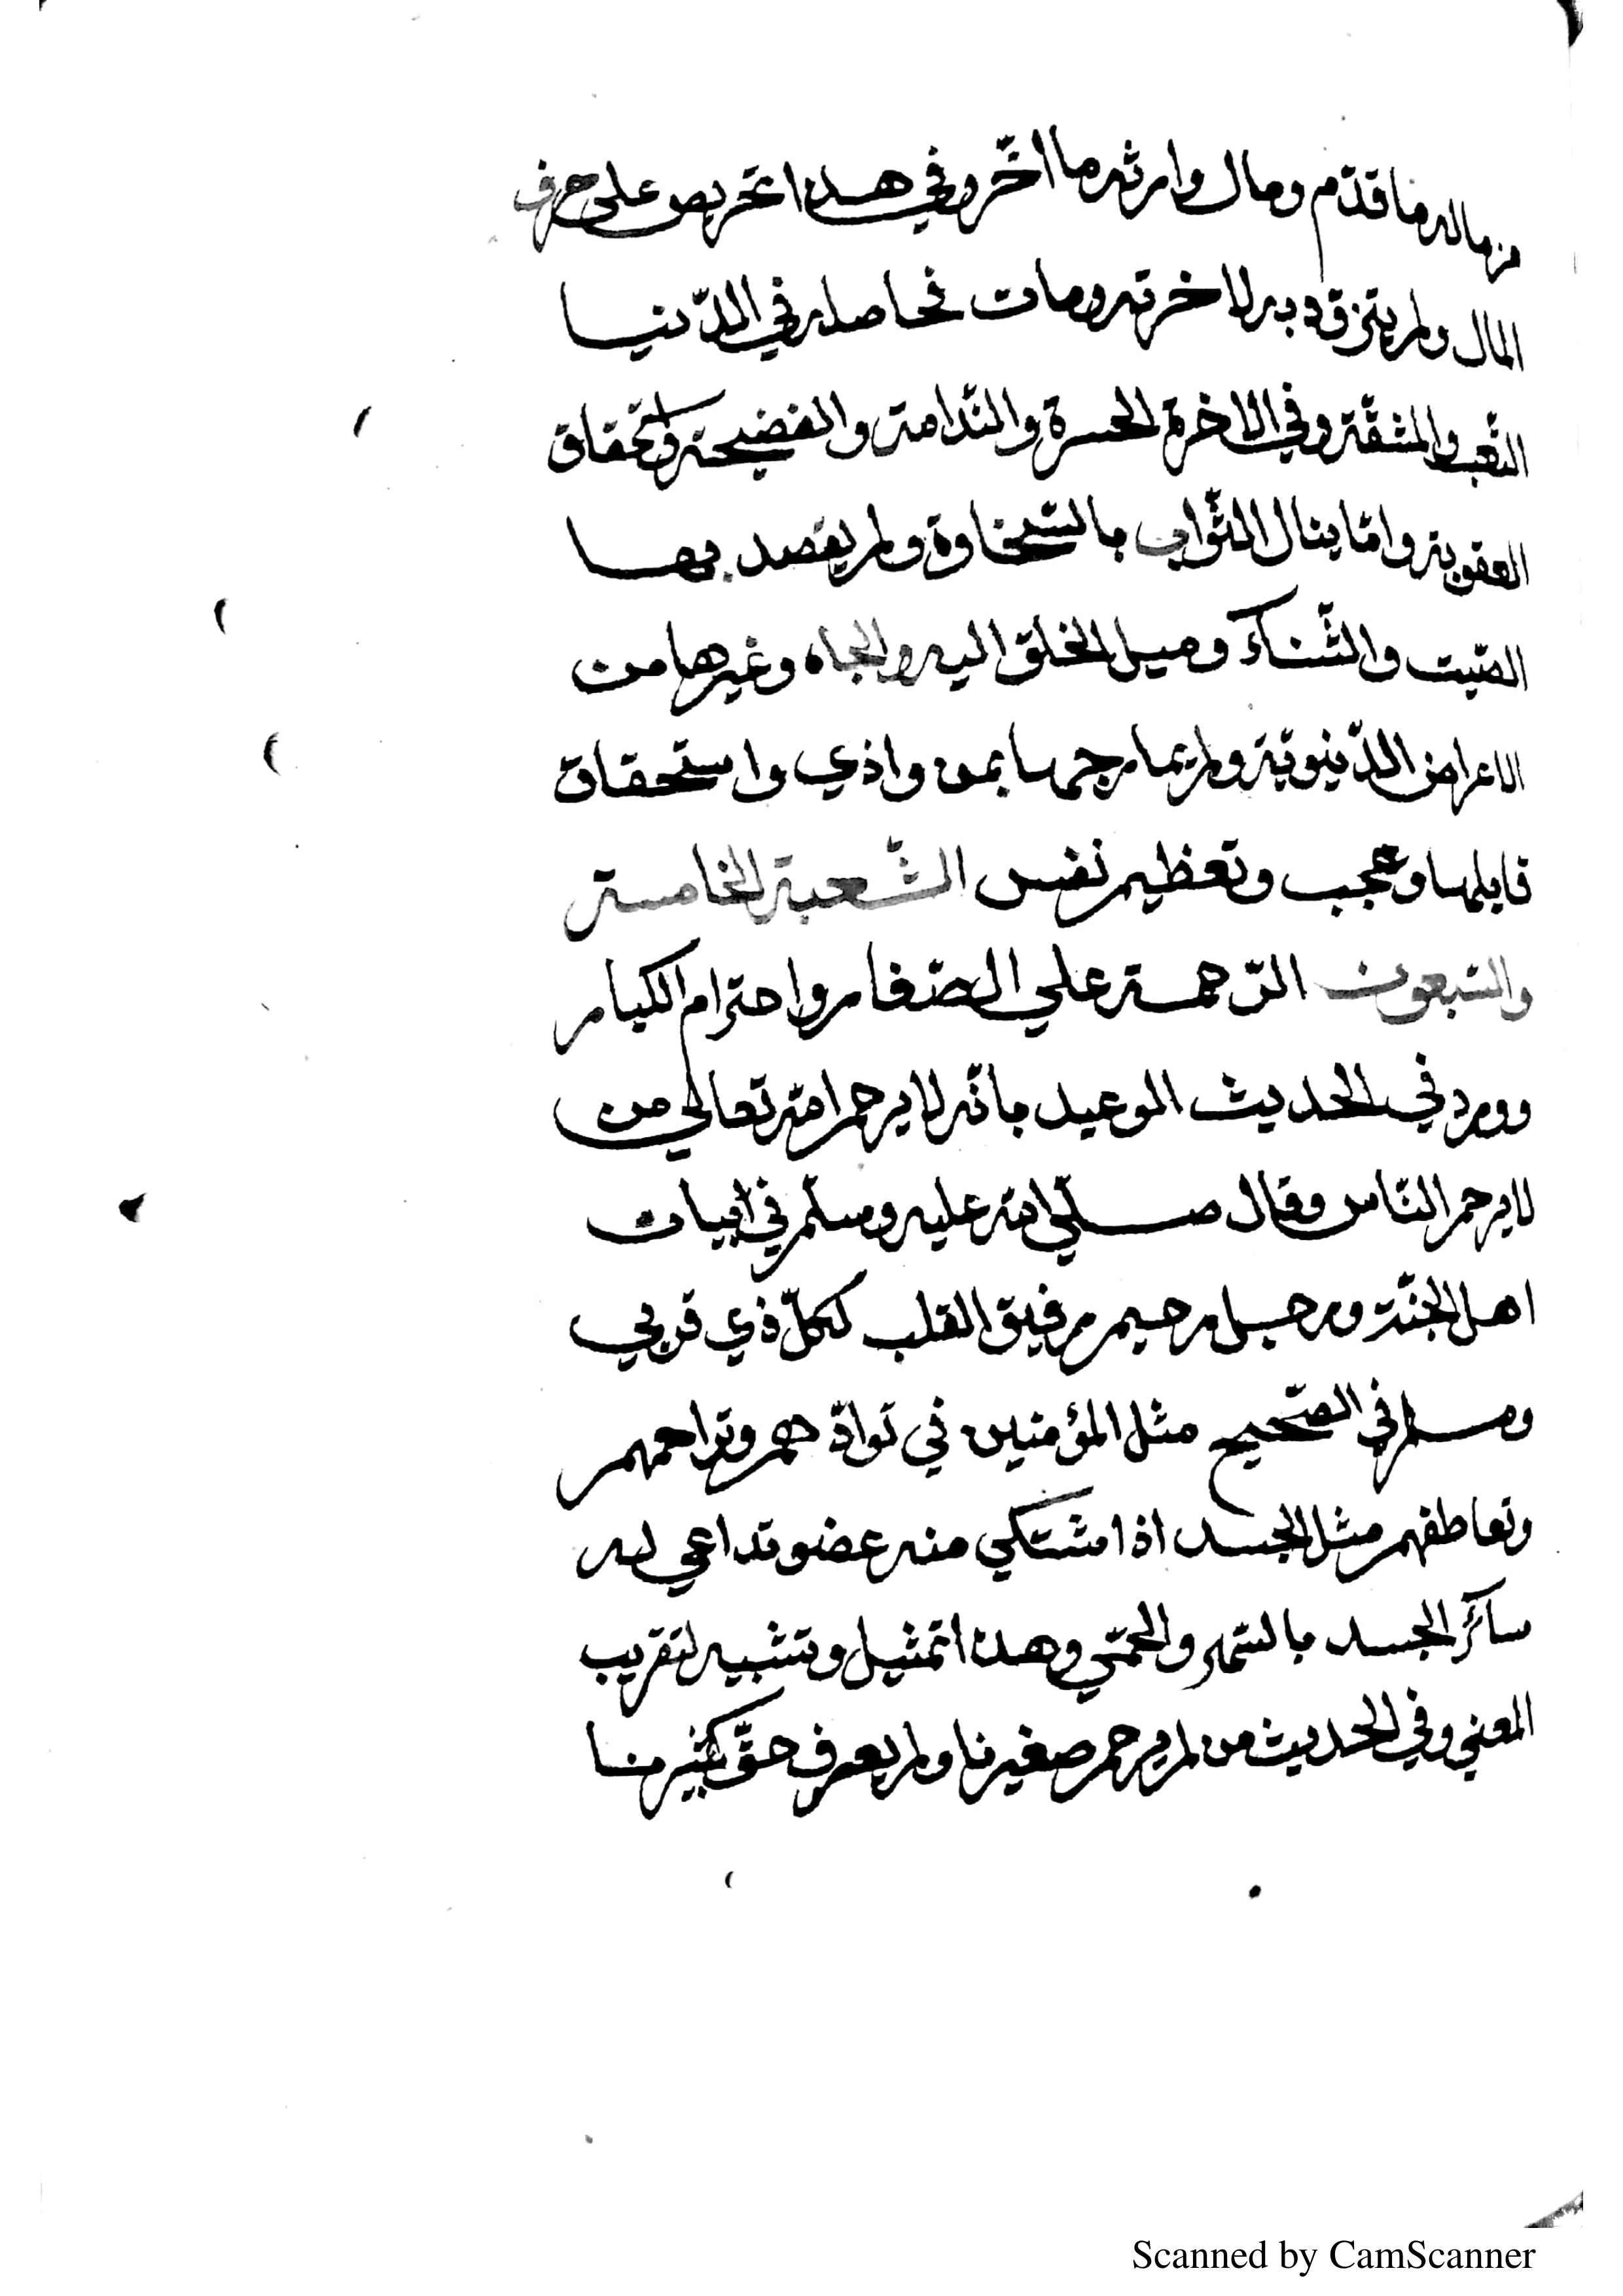 من ماله ما قدّم ومال وارثه ما اخّره وفي هذا تحريص على صرف
المال ولم يتزوّد به لاخرته ومات فحاصله في الدّنيا
التّعب والمشقّة وفي الاخرة الحسرة والنّدامة والفضيحة واستحقاق
العقوبة وانّما ينال الثّواب بالسّخاوة ولم يقصد بها
الصّيت والثّناء وميل الخلق اليه والجاه وغيرها من
الاعراض الدّنيويّة ولربما مزجها بمن واذي واستحقاق
قابلها وعجب وتعظيم نفس الشّعبة الخامسة
والسّبعون الرّحمة علي الصّغار واحترام الكبار
وورد في الحديث الوعيد بانّه لا يرحم الله تعالي من
لا يرحم النّاس وقال صلّي الله عليه وسلّم في ابيات
اهل الجنّة ورجل رحيم رفيق القلب لكلّ ذي قربي
ومسلم في الصّحيح مثل المؤمنين في توادّهم وتراحمهم
وتعاطفهم مثل الجسد اذا اشتكي منه عضو تداعي له
سائر الجسد بالسّهر والحمّي وهذا تمثيل وتشبيه لتقريب
المعني وفي الحديث من لم يرحم صغيرنا ولم يعرف حقّ كبيرنا
Scanned by CamScanner